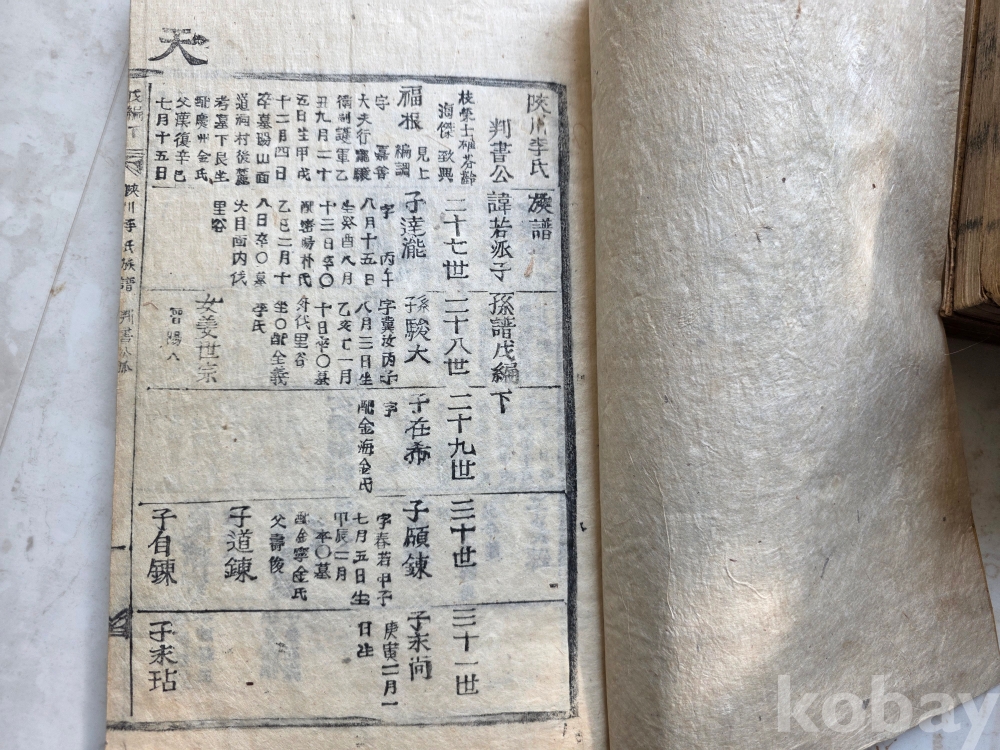 天
陜川李氏族譜
判書公諱若派子孫譜戊編下
二十七世
二十八世
二十九世
三十世
三十一世
福根
見上
編調
字
嘉善
大夫行龍驤
衛副護軍乙
丑九月二十
五日生甲戌
十二月四日
卒墓陽山面
道
村後麓
考墓下艮坐
配慶州金氏
父漢復辛巳
七月十五日
子達瀧
字
丙午
八月十五日
生癸酉八月
十三日卒〇
配密陽朴氏
乙巳二月十
八日卒〇墓
大目面内伐
里谷
孫駿大
字冀汝丙子
八月三日生
乙亥七一月
十日卒〇墓
里谷
坐〇配全義
李氏
女姜世宗
晋陽人
子在希
字
配金海金氏
子碩鍊
字春若甲子
七月五日生
甲辰二月
卒〇墓
配金寧金氏
父壽俊
子道鍊
子自鍊
子末尚
庚寅二月一
日生
子末玷
戊編下
陜川李氏族譜
判書公派
一
kobay